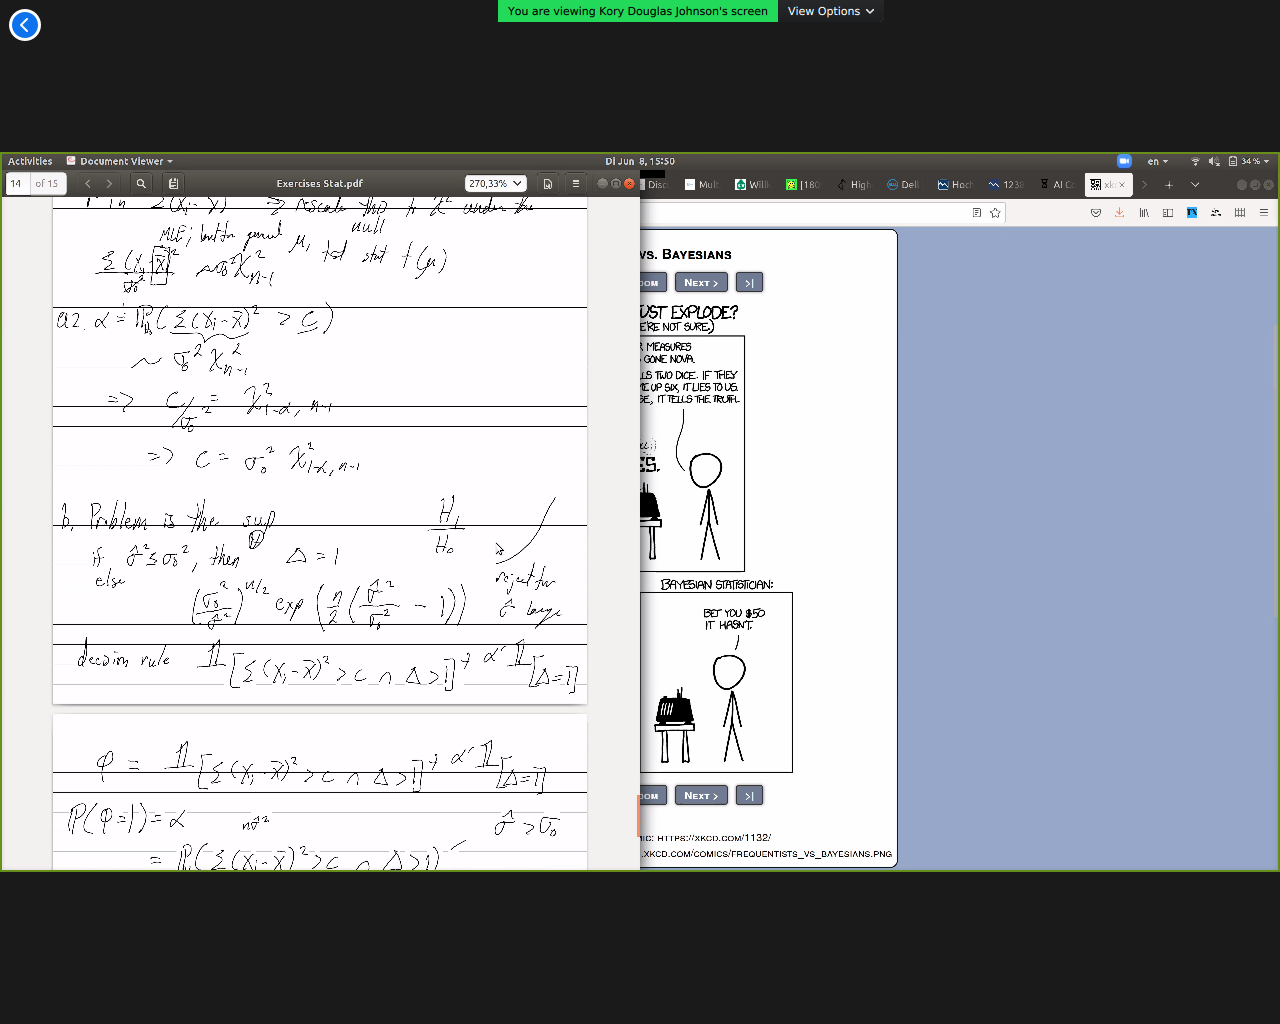 You are viewing Kory Douglas Johnson's screen
View Options
Activities
Document Viewer
Di Jun 8, 15:50
en
34 %
14 of 15
Exercises Stat.pdf
270,33%
Disc
Mult
Willi
[180
High
Dell
Hoch
1238
AI Co
xkc
Σ(Xᵢ-X̄) ⇒ rescale this to χ² under the
null
MLE; but for general μ, test stat f(μ)
Σ(Xᵢ-X̄)²/σ₀² ~ σ₀² χ²ₙ₋₁
a2. α = P_H₀(Σ(Xᵢ-X̄)² > c)
~ σ₀² χ²ₙ₋₁
=> c/σ₀² = χ²₁₋α, n-1
=> c = σ₀² χ²₁₋α, n-1
b. Problem is the sup Θ
H₁/H₀
if σ̂² ≤ σ₀², then Δ = 1
else
(σ₀²/σ̂²)^n/2 exp(n/2(σ̂²/σ₀² - 1))
reject for
σ̂ large
decision rule 𝟙[Σ(Xᵢ-X̄)² > c ∩ Δ>1] + α' 𝟙[Δ=1]
φ = 𝟙[Σ(Xᵢ-X̄)² > c ∩ Δ>1] + α' 𝟙[Δ=1]
P(φ=1) = α
nσ̂²
σ̂ > σ₀
= P(Σ(Xᵢ-X̄)² > c ∩ Δ>1)
VS. BAYESIANS
DOM
NEXT >
>|
UST EXPLODE?
'RE NOT SURE.)
MEASURES
GONE NOVA.
LS TWO DICE. IF THEY
E UP SIX, IT LIES TO US.
SE, IT TELLS THE TRUTH.
ES.
BAYESIAN STATISTICIAN:
BET YOU $50
IT HASN'T.
DOM
NEXT >
>|
IC: HTTPS://XKCD.COM/1132/
.XKCD.COM/COMICS/FREQUENTISTS_VS_BAYESIANS.PNG